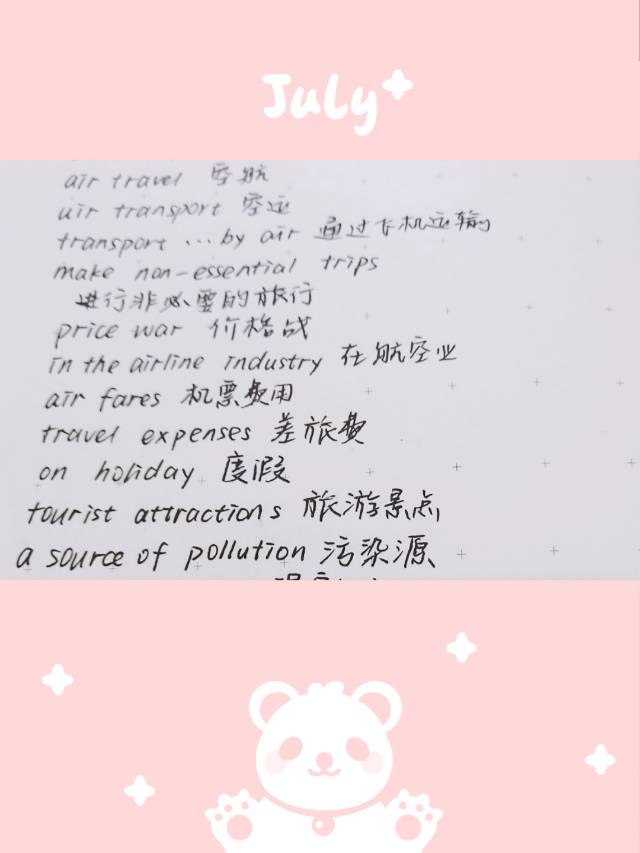 July
air travel 空航
air transport 空运
transport ... by air 通过飞机运输
make non-essential trips
进行非必要的旅行
price war 价格战
in the airline industry 在航空业
air fares 机票费用
travel expenses 差旅费
on holiday 度假
tourist attractions 旅游景点
a source of pollution 污染源